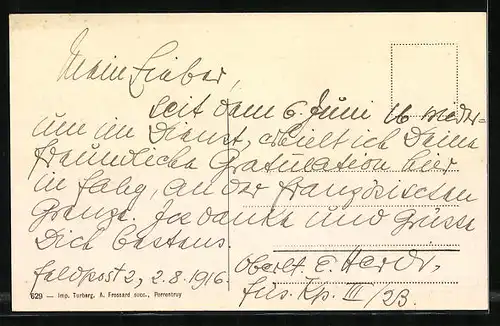 Mein Lieber,
Seit dem 6. Juni 16 wieder-
um im Dienst, erhielt ich Deine
freundliche Gratulation hier
in Fahy, an der französischen
Grenze. Ich danke und Grüsse
Dich bestens.
Feldpost 2, 2.8.1916.
Oberlt. E.
Füs. Kp. III/23.
629 — Imp. Turberg. A. Frossard succ., Porrentruy